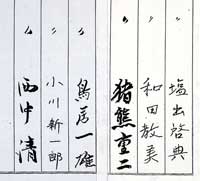 〃 塩出啓典
〃 和田教美
〃 猪熊重二
〃 鳥居一雄
〃 小川新一郎
〃 西中清